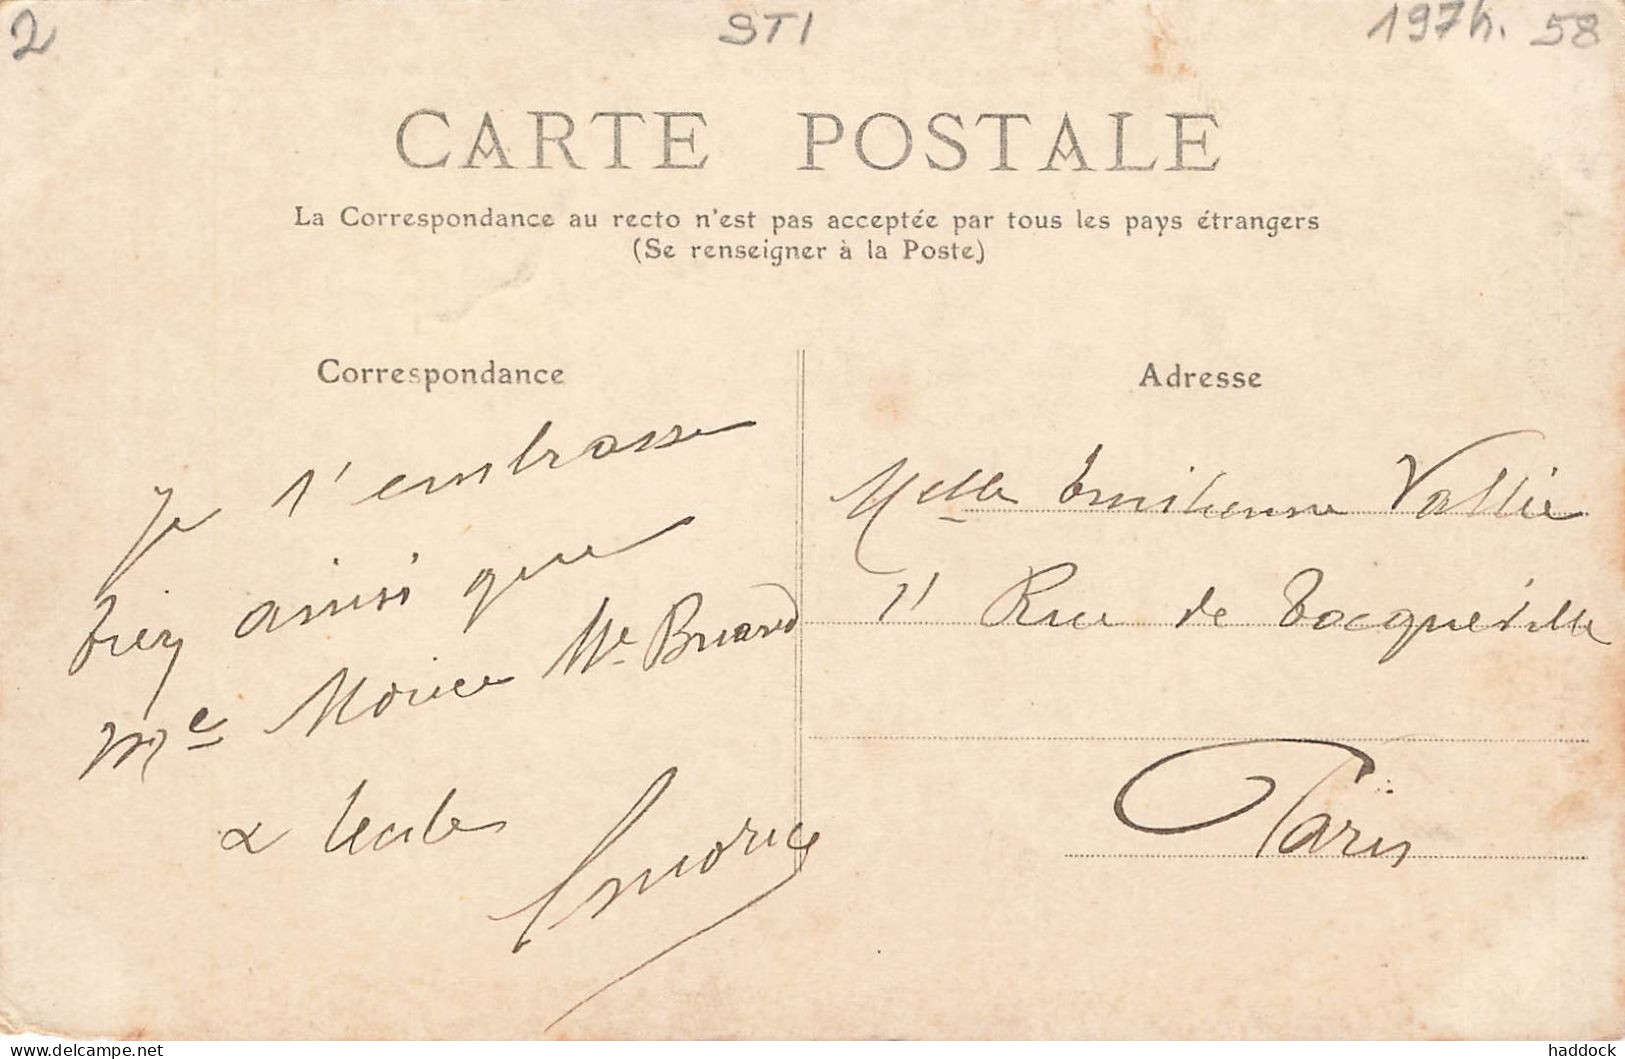 2 STI 197h. 58
CARTE POSTALE
La Correspondance au recto n'est pas acceptée par tous les pays étrangers
(Se renseigner à la Poste)
Correspondance
Je t'embrasse
bien ainsi que
Me Morice Me Briard
& Lucile
Morice
Adresse
Melle Emilienne Vallée
11 Rue de Tocqueville
Paris
delcampe.net
haddock